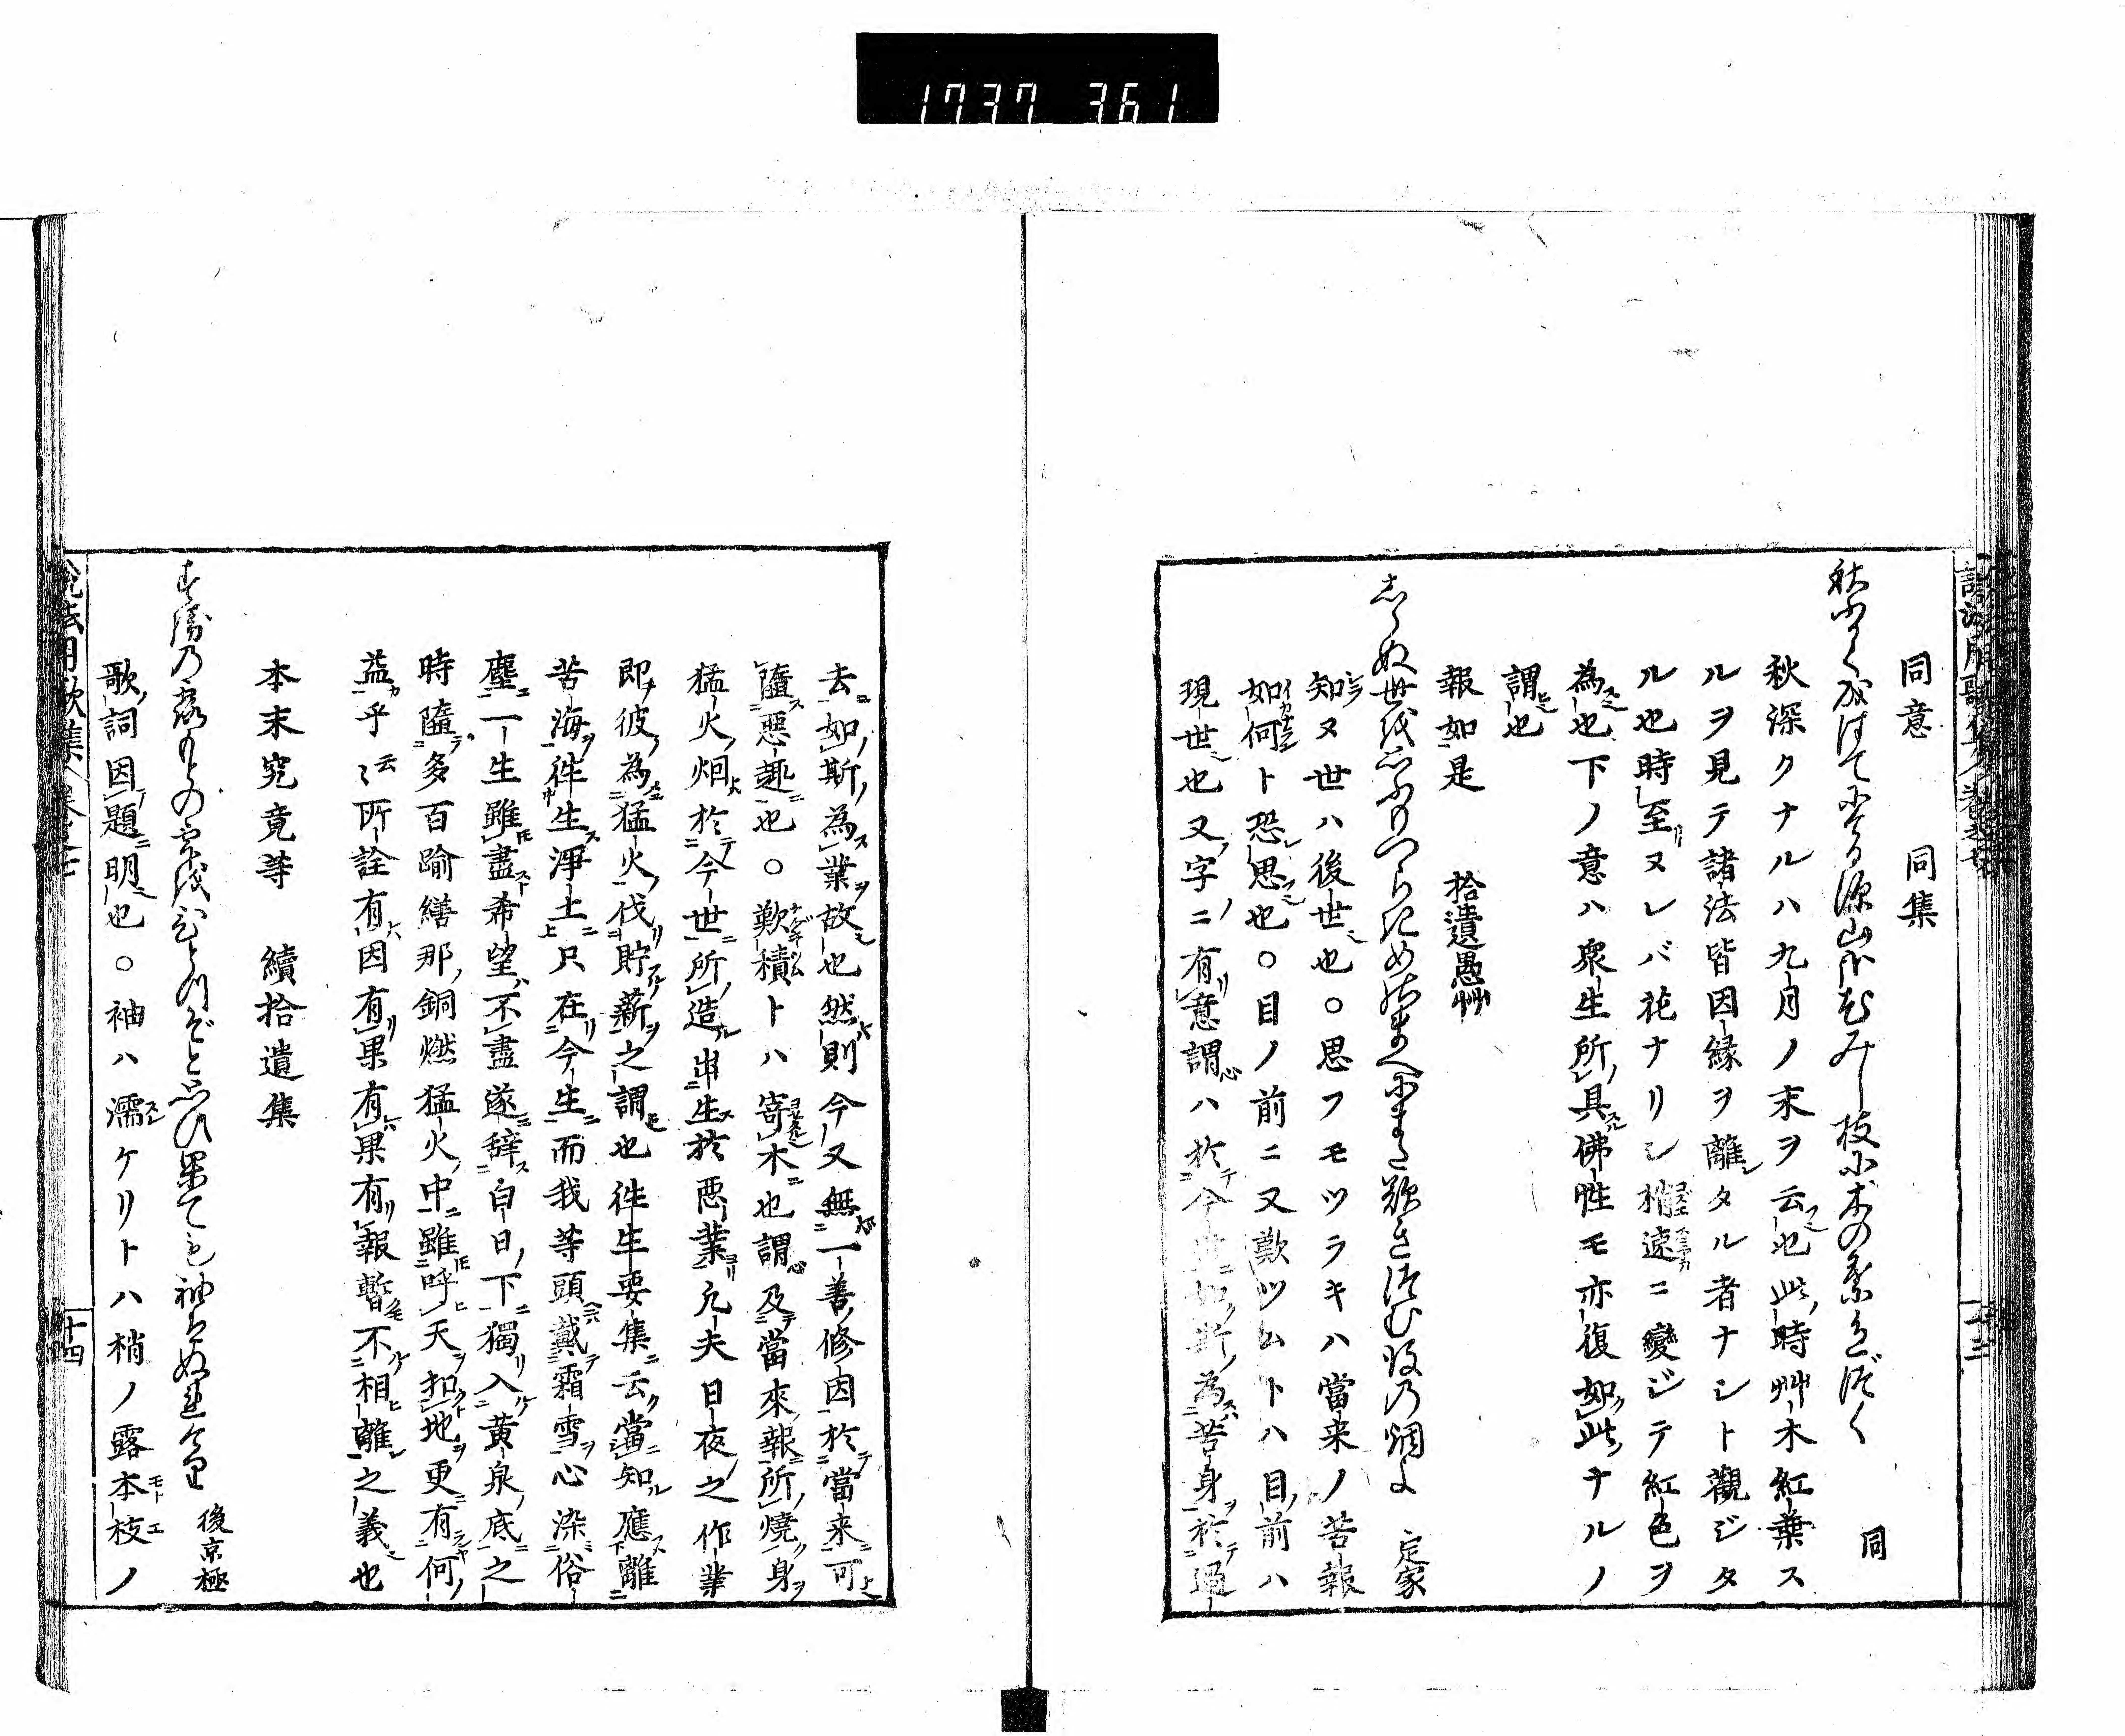 1737 361
同意 同集
秋ふかくなれはてにける深山かな花みし枝に木の葉色づく 同
秋深クナルハ九月ノ末ヲ云也此時艸木紅葉ス
ルヲ見テ諸法皆因縁ヲ離タル者ナシト觀ジタ
ル也時至ヌレバ花ナリシ梢速ニ變ジテ紅色ヲ
為也下ノ意ハ衆生所具佛性モ亦復如此ナルノ
謂也
報如是 拾遺愚艸
しらぬ世を思ふもつらきめのまへにまた歎きつむ後の烟よ 定家
知ヌ世ハ後世也○思フモツラキハ當来ノ苦報
如何ト恐思也○目ノ前ニ又歎ツムトハ目前ハ
現世也又字ニ有意謂ハ於今世如斯為苦身於過
去如斯為業故也然則今又無一善修因於當来可
墮惡趣也○歎積トハ寄木也謂及當來報所燒身
猛火烟於今世所造出生於悪業凢夫日夜之作業
即彼為猛火伐貯薪之謂也徃生要集云當知應離
苦海徃生淨土只在今生而我等頭戴霜雪心染俗
塵一生雖盡希望不盡遂辞白日下獨入黄泉底之
時墮多百踰繕那銅燃猛火中雖呼天扣地更有何
益乎云〻所詮有因有果有果有報暫不相離之義也
本末究竟等 續拾遺集
すゑの露もとの雫をひとつぞと思ひ果ても袖はぬれけり 後京極
歌詞因題明也○袖ハ濡ケリトハ梢ノ露本枝ノ
説法用歌集 卷之七 十四